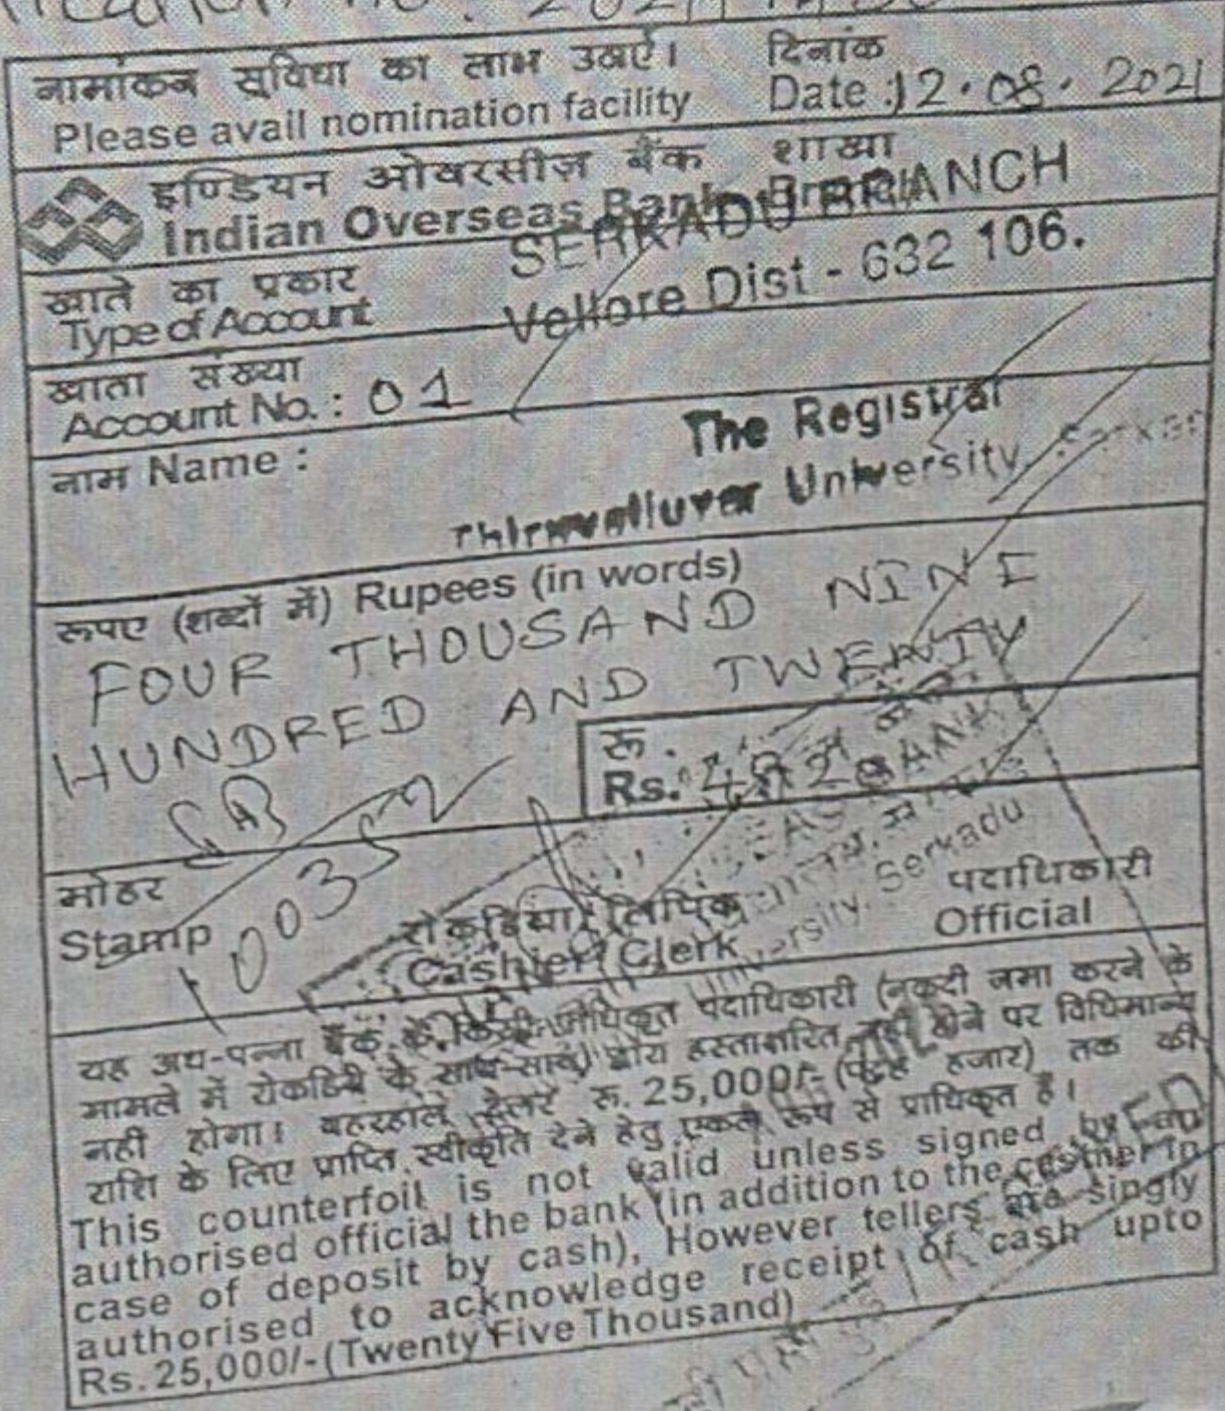 नामांकन सुविधा का लाभ उठाएं। दिनांक
Please avail nomination facility Date : 12.08.2021
इण्डियन ओवरसीज़ बैंक शाखा
Indian Overseas Bank Branch
SERKADU BRANCH
खाते का प्रकार
Type of Account
Vellore Dist - 632 106.
खाता संख्या
Account No. : 01
The Registrar
नाम Name :
Thiruvalluvar University,
रूपए (शब्दों में) Rupees (in words)
FOUR THOUSAND NINE
HUNDRED AND TWENTY
रू.
Rs. 4920
मोहर
Stamp
रोकड़िया/लिपिक पदाधिकारी
Cashier/Clerk Official
University, Serkadu
यह अध-पन्ना बैंक के किसी प्राधिकृत पदाधिकारी (नकदी जमा करने के
मामले में रोकड़िये के साथ-साथ) द्वारा हस्ताक्षरित नहीं होने पर विधिमान्य
नही होगा। बहरहाल टेलर रू. 25,000/- हजार) तक की
राशि के लिए प्राप्ति स्वीकृति देने हेतु एकल रूप से प्राधिकृत है।
This counterfoil is not valid unless signed by
authorised official the bank (in addition to the cashier in
case of deposit by cash), However tellers are singly
authorised to acknowledge receipt of cash upto
Rs.25,000/-(Twenty Five Thousand)